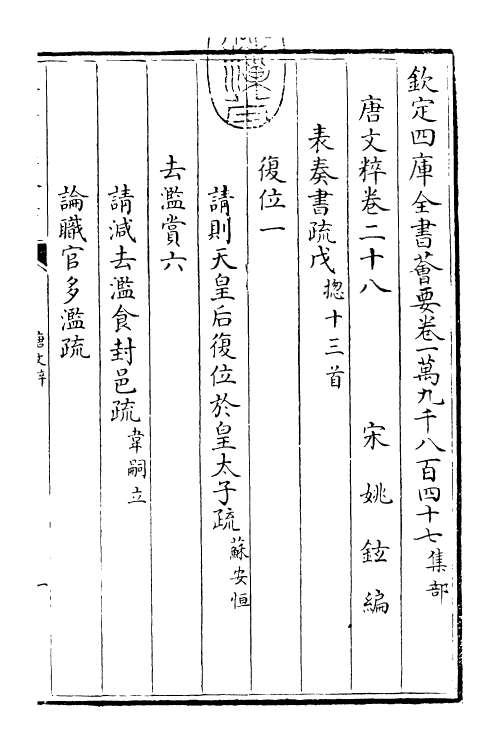 欽定四庫全書薈要卷一萬九千八百四十七集部
唐文粹卷二十八 宋姚鉉編
表奏書疏戊揔十三首
復位一
請則天皇后復位於皇太子疏蘇安恒
去濫賞六
請減去濫食封邑疏韋嗣立
論職官多濫疏
唐文粹
一